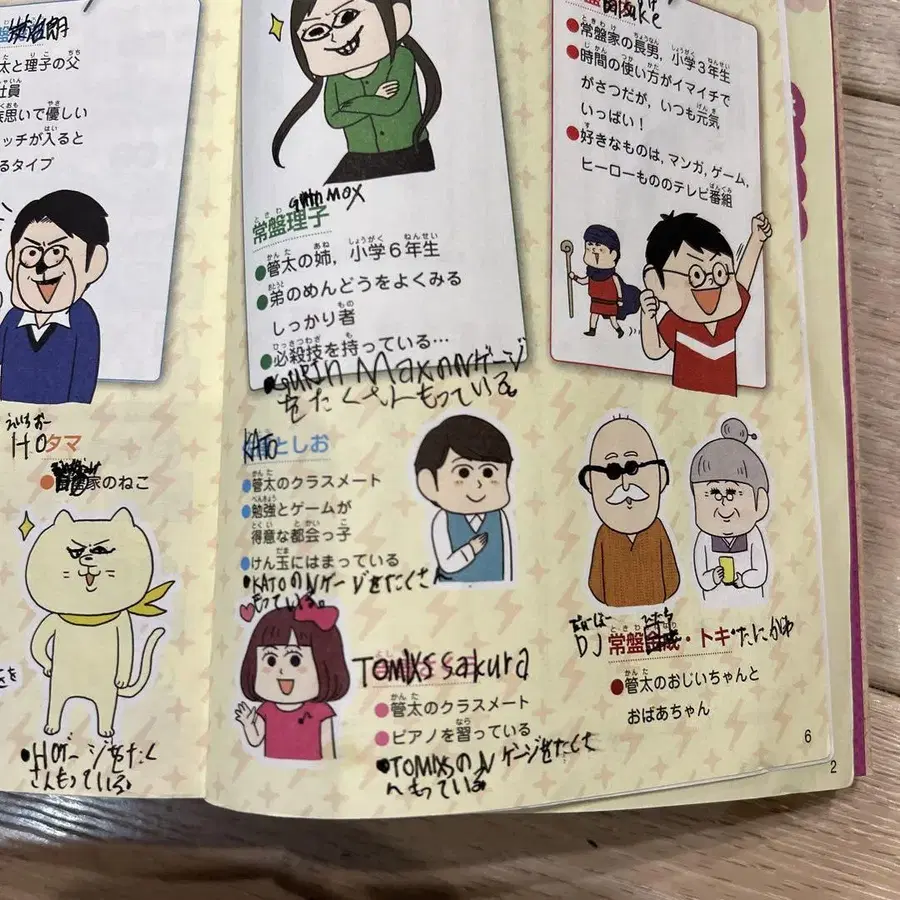 太と理子の父
社員
族思いで優しい
ッチが入ると
るタイプ
Gurin Max
常盤理子
●管太の姉，小学6年生
●弟のめんどうをよくみる
しっかり者
●必殺技を持っている…
●GURIN MaxのNゲージ
をたくさんもっている。
●常盤家の長男，小学3年生
●時間の使い方がイマイチで
がさつだが，いつも元気
いっぱい！
●好きなものは，マンガ，ゲーム，
ヒーローもののテレビ番組
えいちおー
HOタマ
●家のねこ
●HOゲージをたく
さんもっている。
KATOとしお
●管太のクラスメート
●勉強とゲームが
得意な都会っ子
●けん玉にはまっている
●KATOのNゲージをたくさん
もっている。
TOMIXS sakura
●管太のクラスメート
●ピアノを習っている
●TOMIXSのNゲージをたくさ
んもっている。
DJ 常盤・トキ
●管太のおじいちゃんと
おばあちゃん
6
2